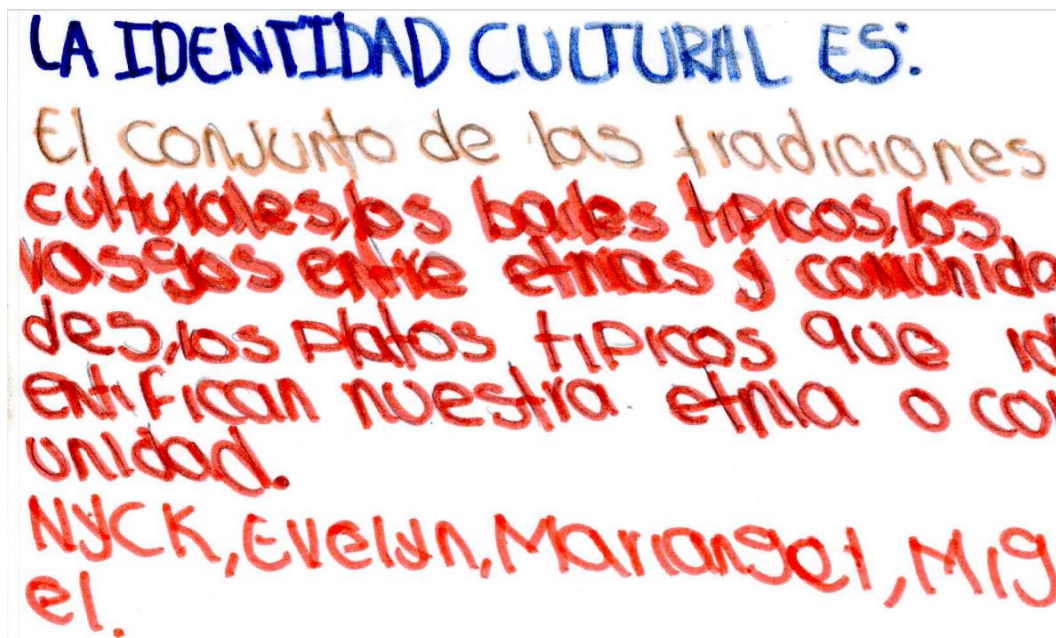 LA IDENTIDAD CULTURAL ES:
El conjunto de las tradiciones
culturales, los bailes tipicos, los
rasgos entre etnias y comunida
des, los platos tipicos que id
entifican nuestra etnia o com
unidad.
NYCK, Evelyn, Mariangel, Mig
el.